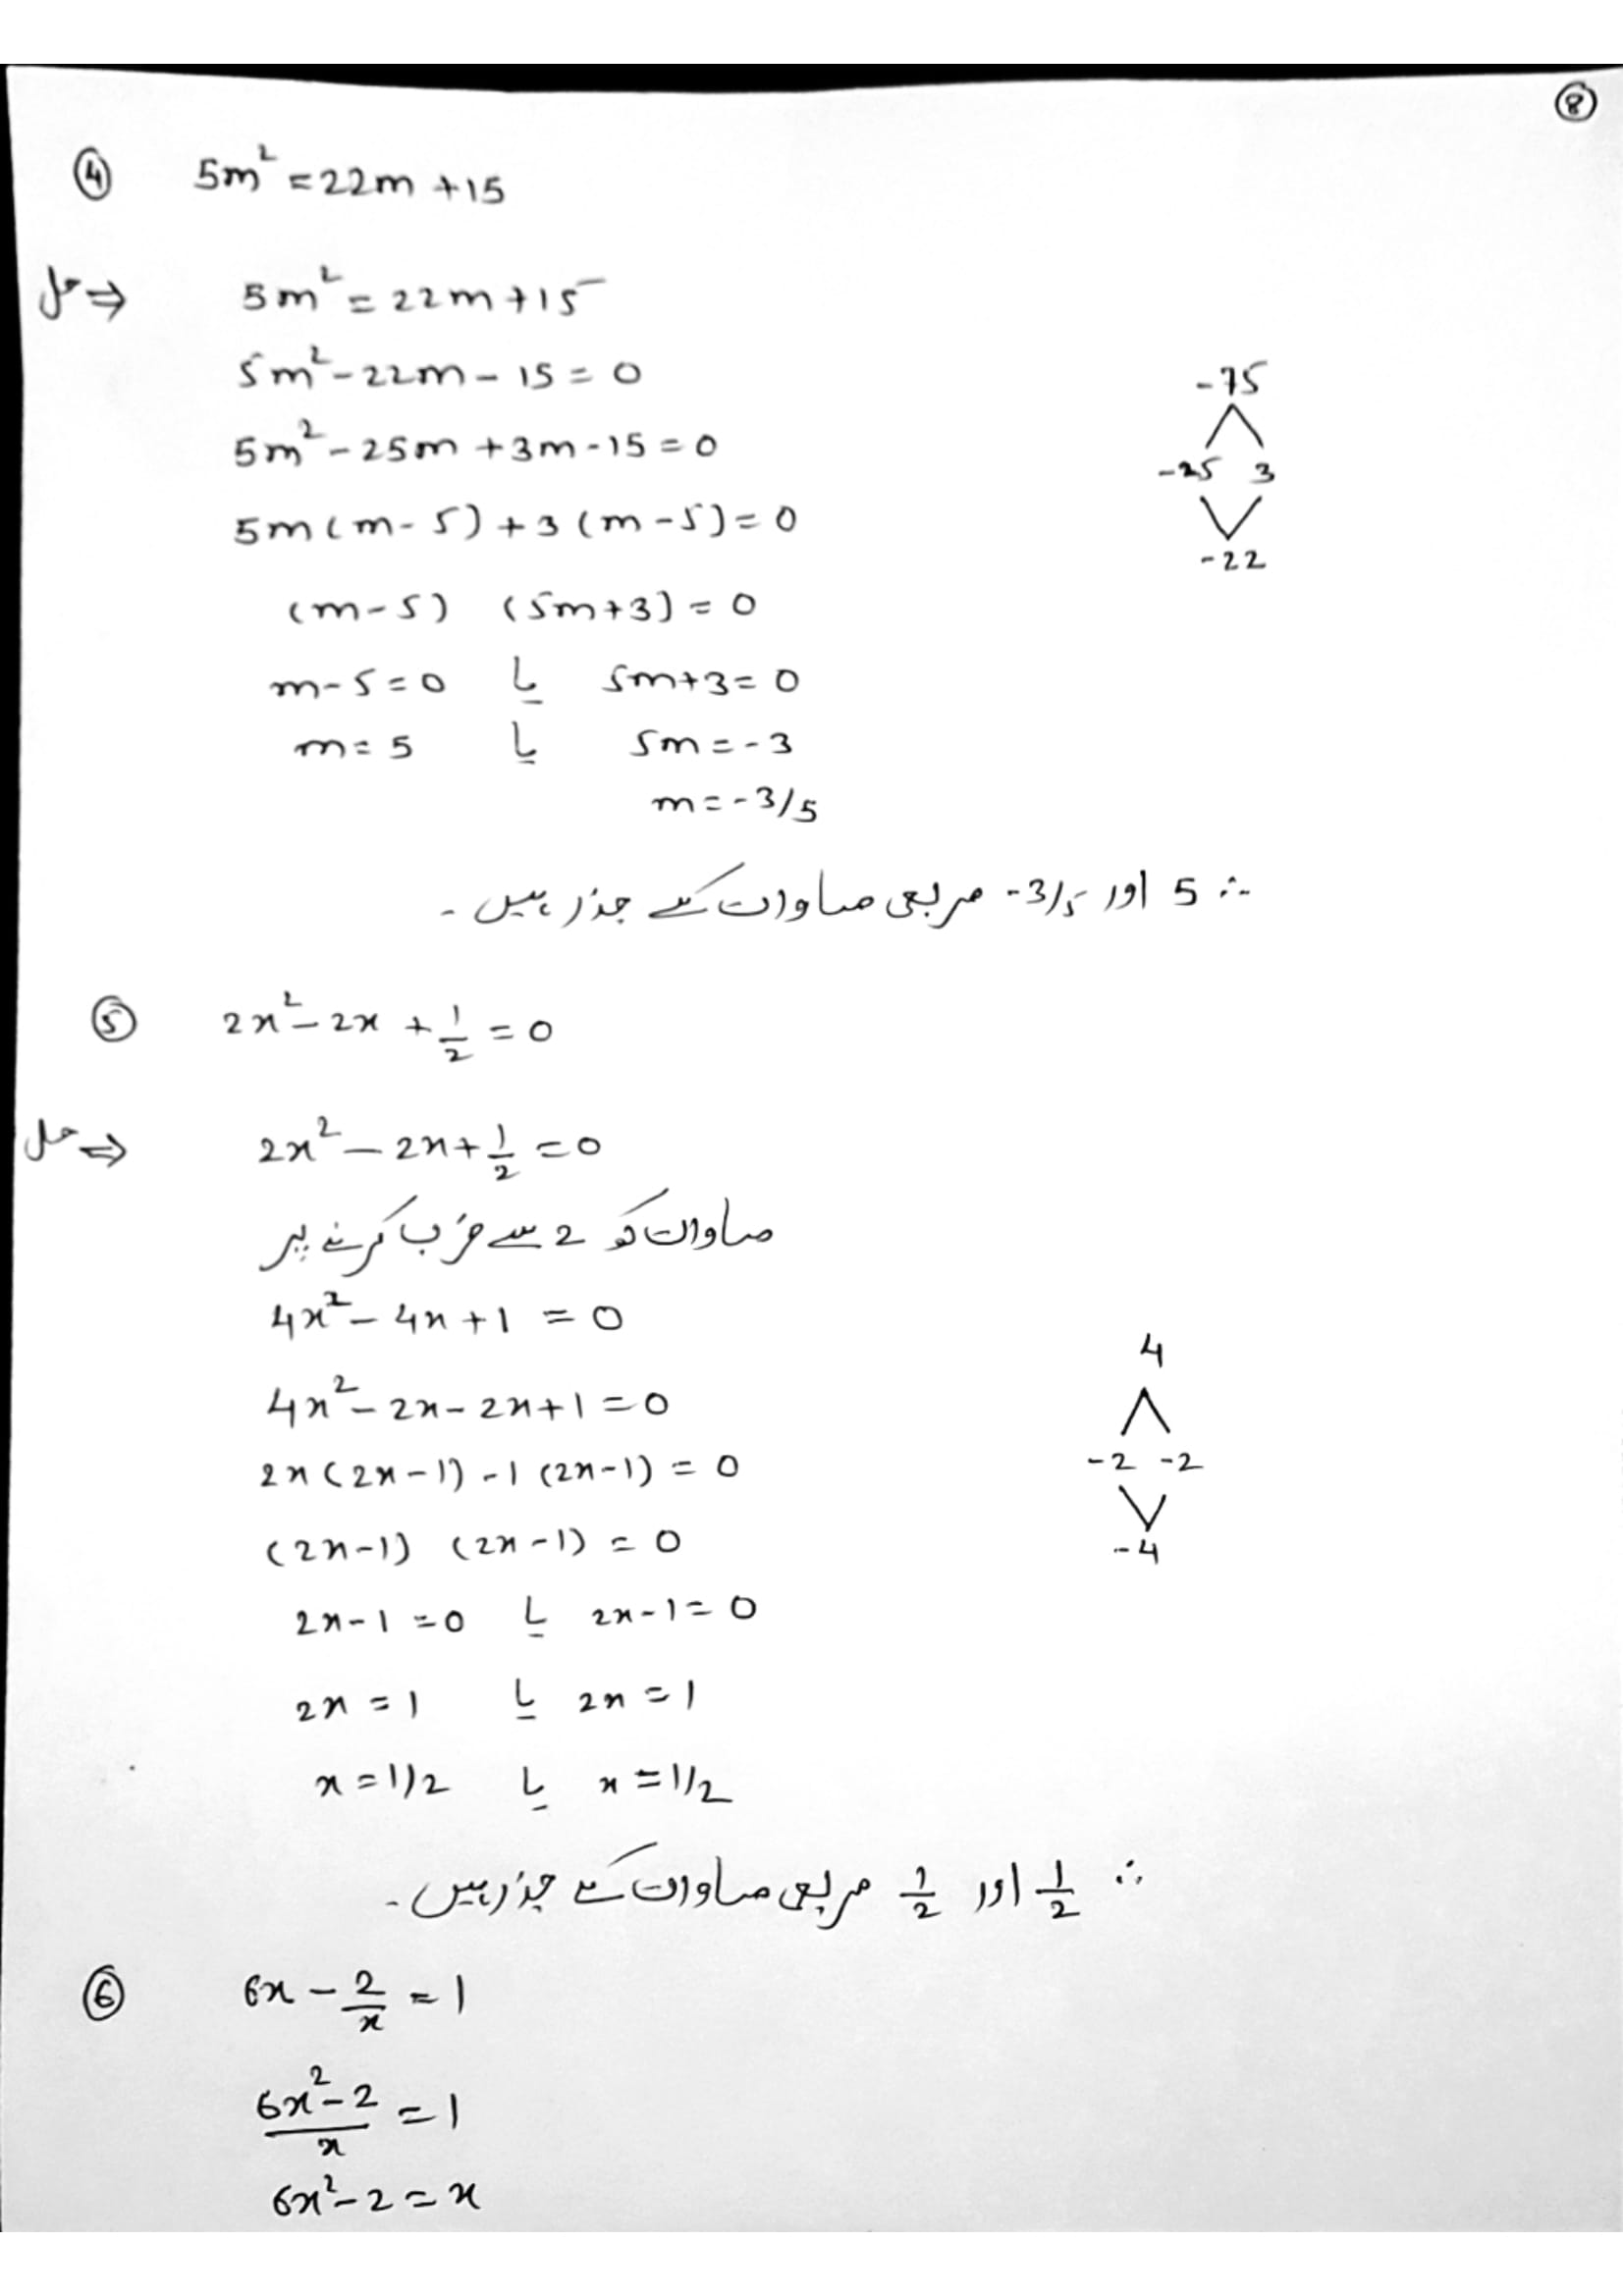 ⑧
④ 5m² = 22m + 15
حل ⇒ 5m² = 22m + 15
5m² - 22m - 15 = 0
5m² - 25m + 3m - 15 = 0
5m (m - 5) + 3 (m - 5) = 0
(m - 5) (5m + 3) = 0
m - 5 = 0 یا 5m + 3 = 0
m = 5 یا 5m = -3
m = -3/5
-75
-25 3
-22
∴ 5 اور -3/5 مربعی مساوات کے جذر ہیں۔
⑤ 2x² - 2x + 1/2 = 0
حل ⇒ 2x² - 2x + 1/2 = 0
مساوات کو 2 سے ضرب کرنے پر
4x² - 4x + 1 = 0
4x² - 2x - 2x + 1 = 0
2x (2x - 1) - 1 (2x - 1) = 0
(2x - 1) (2x - 1) = 0
2x - 1 = 0 یا 2x - 1 = 0
2x = 1 یا 2x = 1
x = 1/2 یا x = 1/2
4
-2 -2
-4
∴ 1/2 اور 1/2 مربعی مساوات کے جذر ہیں۔
⑥ 6x - 2/x = 1
(6x² - 2)/x = 1
6x² - 2 = x